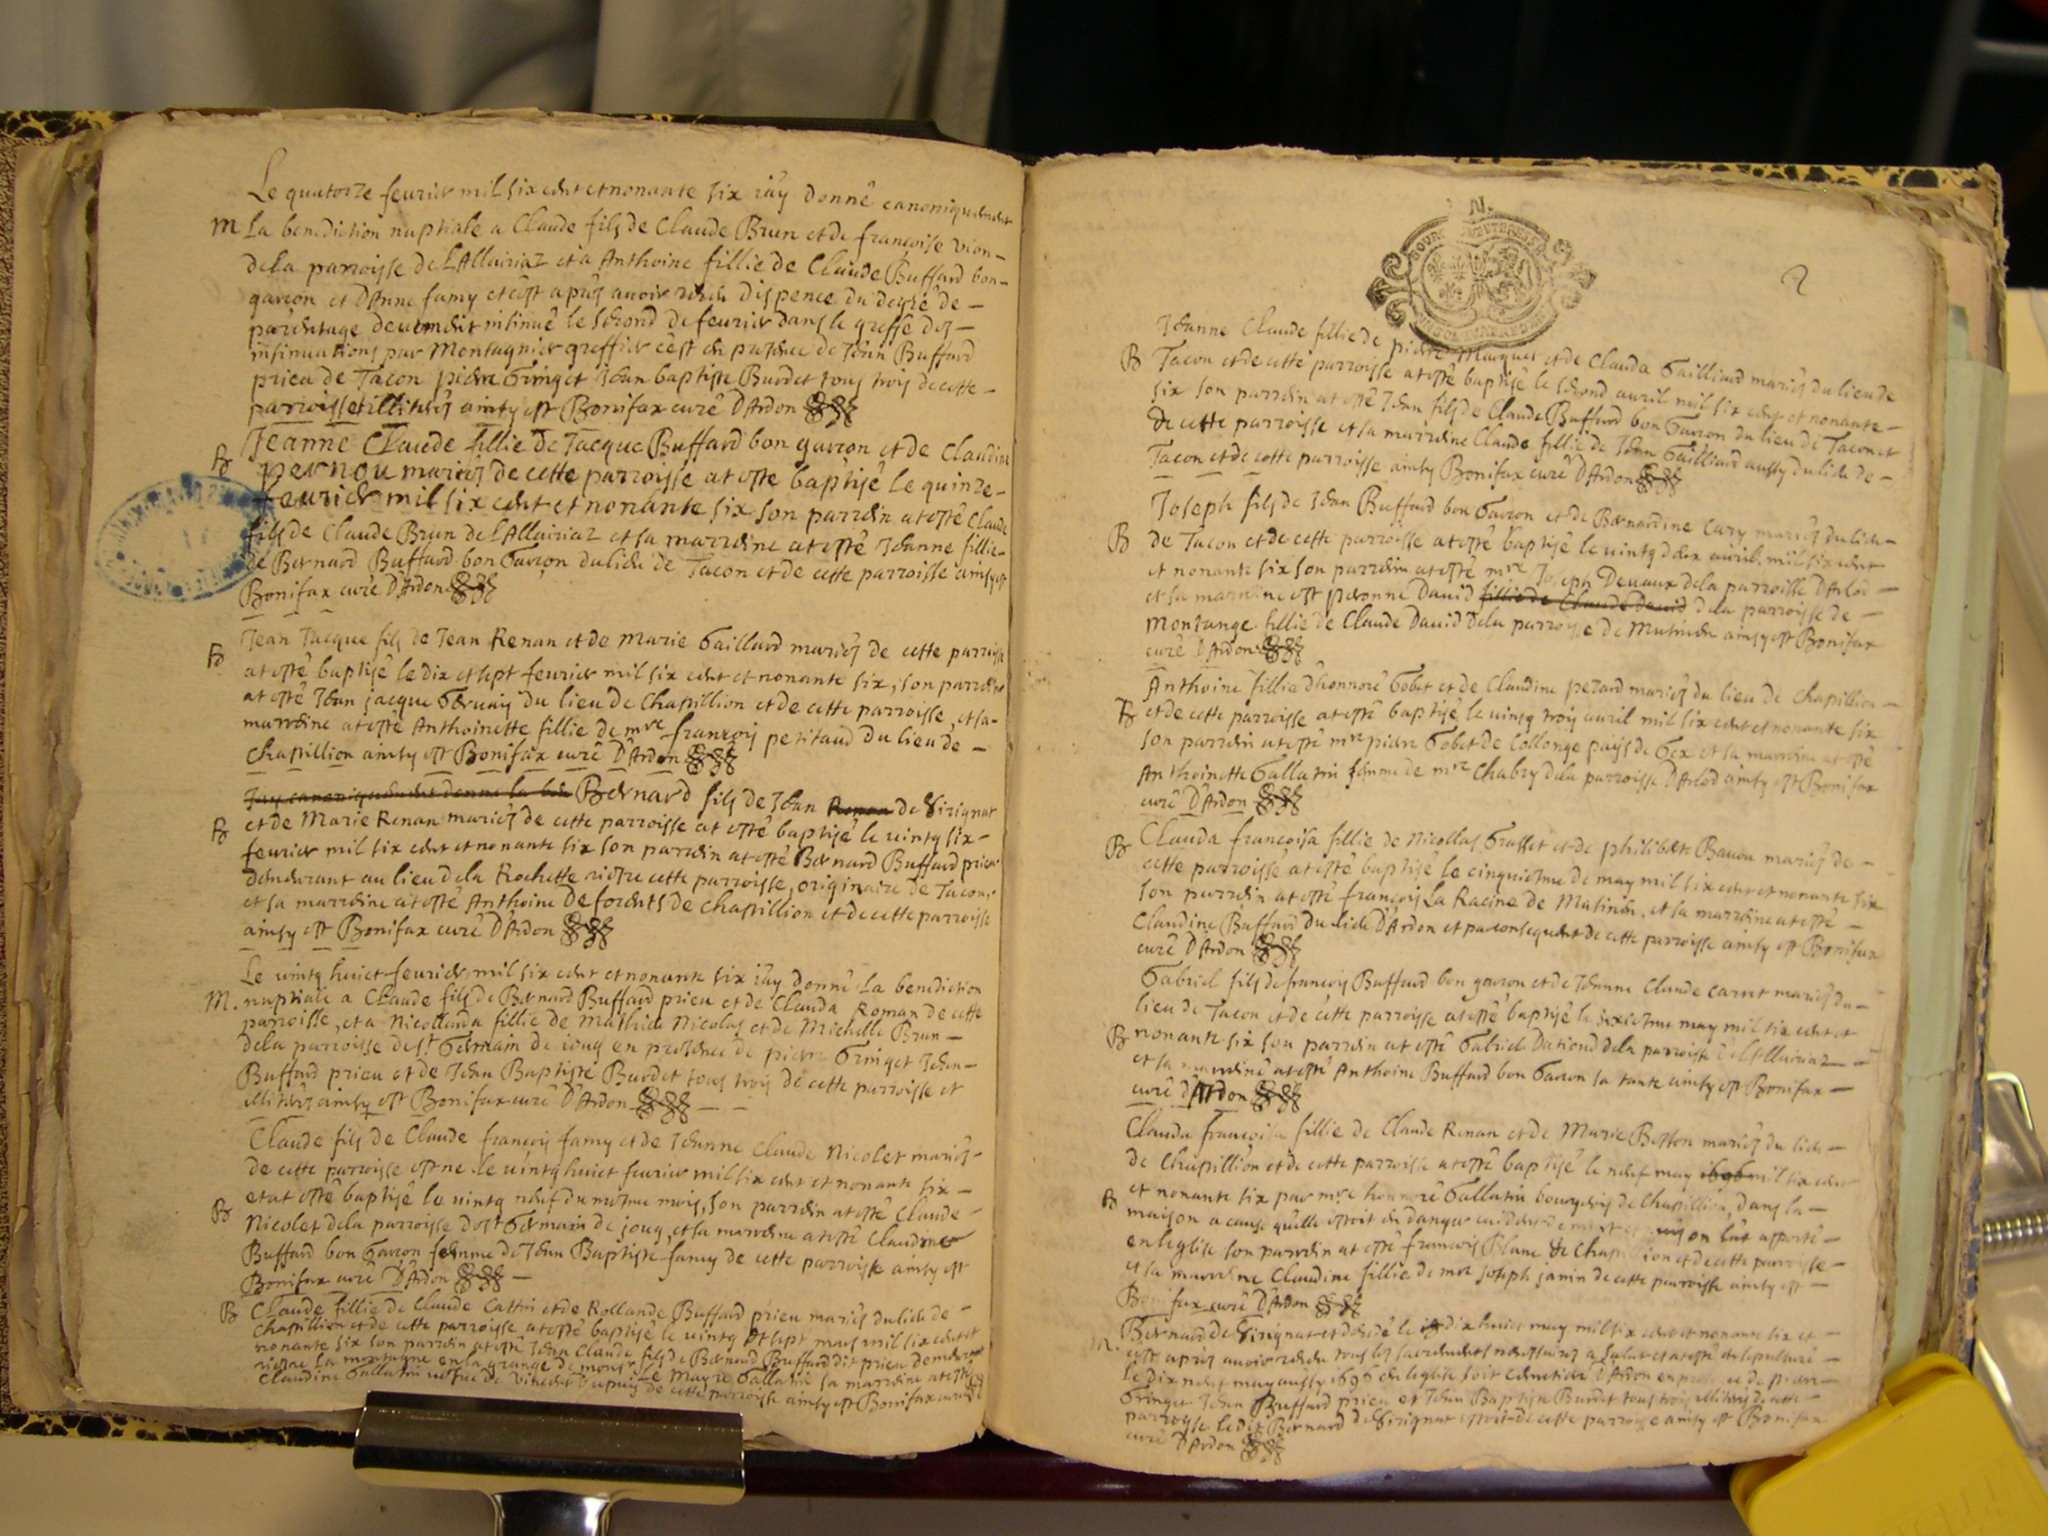 Le quatorze feurier mil six cent et nonante six i'ay donné canoniquement
M La benediction nuptiale a Claude fils de Claude Brun et de françoise vion-
dela parroisse de L'Allairiaz et a Anthoine fillie de Claude Buffard bon-
garcon et D'Anne famy et c'est apres auoir dispence du degré de-
parentage deuement insinué le second de feurier dans le greffe des-
insinuations par Montagnier greffier c'est en presence de Jean Buffard
prieu de Tacon pierre Gringet Jean baptiste Burdet tous trois de cette-
parroisse et illiterés ainsy est Bonifax curé D'Ardon
B Jeanne Claude fillie de Jacque Buffard bon garcon et de Claudine
pernou mariés de cette parroisse at esté baptisé Le quinze-
feurier mil six cent et nonante six son parrein at esté Claude
fils de Claude Brun de L'Allairiaz et sa marreine at esté Jeanne fillie-
de Bernard Buffard bon Garcon du lieu de Tacon et de cette parroisse ainsy est
Bonifax curé D'Ardon
Jean Jacque fils de Jean Renan et de Marie Gaillard mariés de cette parroisse
B at esté baptisé le dix et sept feurier mil six cent et nonante six, son parrein
at esté Jean jacque Geruais du lieu de Chastillion et de cette parroisse, et sa-
marreine at esté Anthoinette fillie de mre françois petitaud du lieu de-
Chastillion ainsy est Bonifax curé D'Ardon
Jay canoniquement donné la ben Bernard fils de Jean Renan de Sirignat
B et de Marie Renan mariés de cette parroisse at esté baptisé le vintq six-
feurier mil six cent et nonante six son parrein at esté Bernard Buffard prieu
demeurant au lieu dela Rochette riere cette parroisse, originaire de Tacon,
et sa marreine at esté Anthoine Deforents de chastillion et de cette parroisse
ainsy est Bonifax curé D'Ardon
Le vintq huict feurier mil six cent et nonante six i'ay donné La benediction
M. nuptiale a Claude fils de Bernard Buffard prieu et de Clauda Roman de cette
parroisse, et a Nicollarda fillie de Mathieu Nicolas et de Michelle Brun-
dela parroisse de st Germain de ioug en presence de pierre Gringet Jean-
Buffard prieu et de Jean Baptiste Burdet tous trois de cette parroisse et
illiterés ainsy est Bonifax curé D'Ardon
Claude fils de Claude françois famy et de Jeanne Claude Nicolet mariés-
de cette parroisse est né le vintq huict feurier mil six cent et nonante six-
et at esté baptisé le vintq neuf du mesme mois, son parrein at esté Claude-
B Nicolet dela parroisse de st Germain de joug, et sa marreine at esté Claudine
Buffard bon Garcon femme de Jean Baptiste famy de cette parroisse ainsy est
Bonifax curé D'Ardon
B Claude fillie de Claude Cattin et de Rollande Buffard prieu mariés du lieu de-
Chastillion et de cette parroisse at esté baptisé le vintq et sept mars mil six cent et
nonante six son parrein at esté Jean Claude fils de Bernard Buffard dit prieu demeurant
riere La montagne en la grange de monsr Le Mayre Gallatin sa marreine at esté
Claudine Gallatin de cette parroisse ainsy est Bonifax curé
N.
2
Jeanne Claude fillie de pierre Marquet et de Clauda Gailliard mariés du lieu de
B Tacon et de cette parroisse at esté baptisé le second auril mil six cent et nonante-
six son parrein at esté Jean fils de Claude Buffard bon Garcon du lieu de Tacon et
de cette parroisse et sa marreine Claude fillie de Jean Gailliard aussy du lieu de-
Tacon et de cette parroisse ainsy Bonifax curé D'Ardon
Joseph fils de Jean Buffard bon Garcon et de Bernardine Cary mariés du lieu-
B de Tacon et de cette parroisse at esté baptisé le vintq deux auril mil six cent
et nonante six son parrein at esté mre Joseph Deuaux dela parroisse D'Arlod-
et sa marreine est peronne Dauid fillie de Claude Dauid dela parroisse de-
Montange fillie de Claude Dauid dela parroisse de Musinen ainsy est Bonifax
curé D'Ardon
Anthoine fillie d'honnoré Gobet et de Claudine pezard mariés du lieu de chapillion-
B et de cette parroisse at esté baptisé le vintq trois auril mil six cent et nonante six
son parrein at esté mre pierre Gobet de Collonge pays de Gex et sa marreine at esté
Anthoinette Gallatin femme de mre Chabry dela parroisse D'Arlod ainsy est Bonifax
curé D'Ardon
B Clauda françoisa fillie de Nicollas Grasset et de philiberte Bauou mariés de-
cette parroisse at esté baptisé le cinquiesme de may mil six cent et nonante six
son parrein at esté françois La Racine de Musinen, et sa marreine at esté-
Claudine Buffard du lieu D'Ardon et par consequent de cette parroisse ainsy est Bonifax
curé D'Ardon
Gabriel fils de françois Buffard bon garcon et de Jeanne Claude Carret mariés du-
lieu de Tacon et de cette parroisse at esté baptisé le sixiesme may mil six cent et
B nonante six son parrein at esté Gabriel dela parroisse de L'Allairiaz-
et sa marreine at esté Anthoine Buffard bon Garcon sa tante ainsy est Bonifax-
curé d'Ardon
Clauda françoisa fillie de Claude Renan et de Marie Beston mariés du lieu-
de Chastillion et de cette parroisse at esté baptisé le neuf may 1696 mil six cent
B et nonante six par mre honnoré Gallatin bourgeois de Chastillion, dans la-
maison a cause qu'elle estoit en danger on l'at apporté-
en l'eglise son parrein at esté françois Blanc de Chastillion et de cette parroisse-
et sa marreine Claudine fillie de mre Joseph janin de cette parroisse ainsy est-
Bonifax curé D'Ardon
Bernard de Sirignat est decedé le dix huict may mil six cent et nonante six et
M. c'est apres auoir tous les sacrements necessaires a salut et at esté ensepulturé-
Le dix neuf may aussy 1696 en l'eglise soit cemetiere D'Ardon en presence de pierre-
Gringet Jean Buffard prieu et Jean Baptiste Burdet tous trois illiterés de cette-
parroisse Ledit Bernard de Sirignat estoit de cette parroisse ainsy est Bonifax
curé D'Ardon